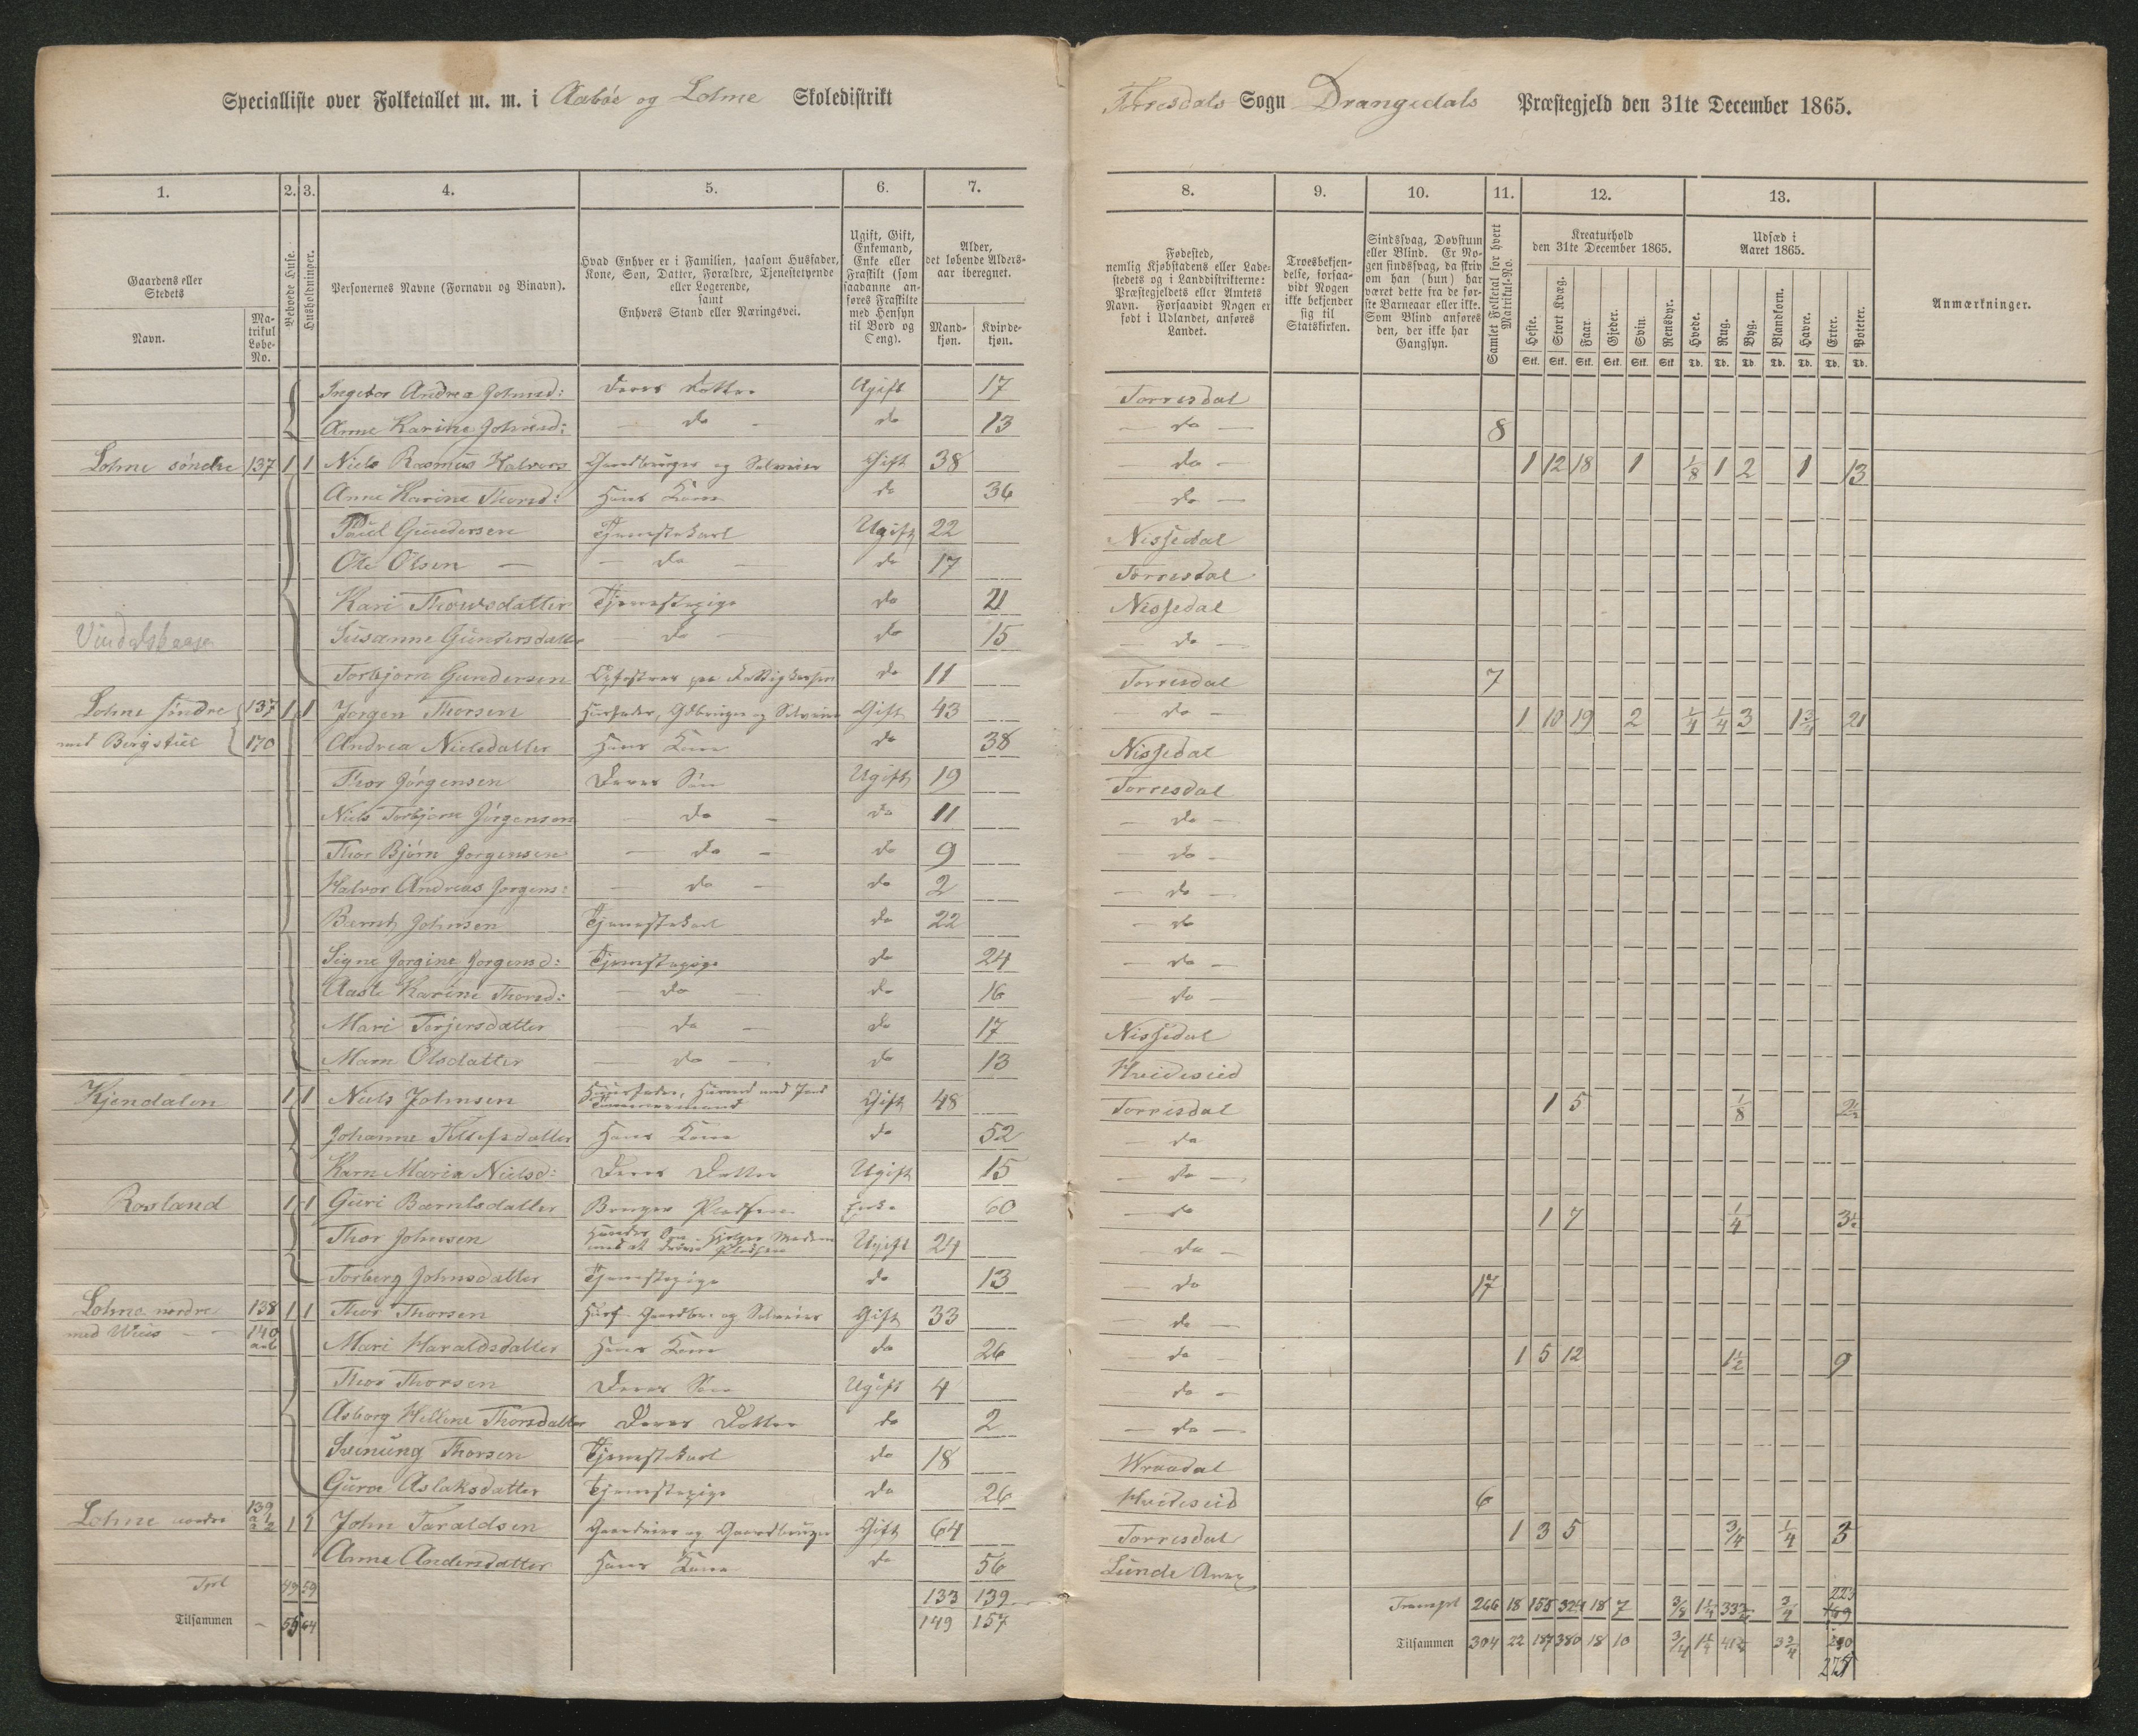 Specialliste over Folketallet m. m. i Aabøe og Lohne Skoledistrikt
Torresdals Sogn Drangedals Præstegjeld den 31te December 1865.
1. 2. 3. 4. 5. 6. 7.
8. 9. 10. 11. 12. 13.
Gaardens eller Stedets
Navn.
Matrikul Løbe-No.
Beboede Huse.
Husholdninger.
Personernes Navne (Fornavn og Binavn).
Hvad Enhver er i Familien, saasom Husfader, Kone, Søn, Datter, Forældre, Tjenestetyende eller Logerende, samt Enhvers Stand eller Næringsvei.
Ugift, Gift, Enkemand, Enke eller Fraskilt (som saadanne anføres Fraskilte med Hensyn til Bord og Seng).
Alder, det løbende Aldersaar iberegnet.
Mandkjøn. Kvindekjøn.
Fødested, nemlig Kjøbstadens eller Ladestedets og i Landdistrikterne: Præstegjeldets eller Amtets Navn. Forsaavidt Nogen er født i Udlandet, anføres Landet.
Troesbekjendelse, forsaavidt Nogen ikke bekjender sig til Statskirken.
Sindssvag, Døvstum eller Blind. Er Nogen sindssvag, da skriv om han (hun) har været dette fra de første Barneaar eller ikke. Som Blind anføres den, der ikke har Gangsyn.
Samlet Folketal for hvert Matrikul-No.
Kreaturhold den 31te December 1865.
Heste. Stort Kvæg. Faar. Gjeder. Svin. Rensdyr.
Stk. Stk. Stk. Stk. Stk. Stk.
Udsæd i Aaret 1865.
Hvede. Rug. Byg. Blandkorn. Havre. Erter. Poteter.
Td. Td. Td. Td. Td. Td. Td.
Anmærkninger.
Ingebor Andrea Johnsd: Deres Datter Ugift 17 Torrisdal
Anne Karine Johnsd: do do 13 do 8
Lohne søndre 137 1 1 Niels Rasmus Halvors Gaardbruger og Selveier Gift 38 do 1 12 18 1 1/8 1 2 1 13
Anne Karine Thorsd: Hans Kone do 36 do
Poul Gundersen Tjenestekarl Ugift 22 Nissedal
Ole Olsen do do 17 Torrisdal
Kari Thorsdatter Tjenestepige do 21 Nissedal
Susanne Gundersdatter do do 15 do
Torbjorn Gundersen do 11 Torrisdal 7
Lohne søndre 137 1 1 Jørgen Thorsen Husfader, Gdbruger og Selveier Gift 43 do 1 10 19 2 1/4 1/4 3 21
med Bergstuel 170 Andrea Nielsdatter Hans Kone do 38 Nissedal
Thor Jørgensen Deres Søn Ugift 19 Torrisdal
Niels Torbjørn Jørgensen do do 11 do
Thor Bjørn Jorgensen do do 9 do
Halvor Andreas Jorgens: do do 2 do
Bernt Johnsen Tjenestekarl do 22 do
Signe Jorgine Jorgensd: Tjenestepige do 24 do
Aaste Karine Thorsd: do do 16 do
Mari Terjersdatter do do 17 Nissedal
Maren Olsdatter do do 13 Hvideseid
Kjendalen 1 1 Niels Johnsen Husfader, Huusmd med Jord Tømmermand Gift 48 Torrisdal 1 5 1/8 2½
Johanne Tellefsdatter Hans Kone do 52 do
Karn Maria Nielsd: Deres Datter Ugift 15 do
Rosland 1 1 Guri Berntsdatter Bruger Pladsen Enke 60 do 1 7 1/4 3½
Thor Johnsen Hendes Søn Hjelper Moderen med at drive Pladsen Ugift 24 do
Torberg Johnsdatter Tjenestepige do 13 do 17
Lohne nordre 138 1 1 Thor Thorsen Husf Gaardbr. og Selveier Gift 33 do
140 Mari Haraldsdatter Hans Kone do 26 do 1 5 12 1½ 9
Thor Thorsen Deres Søn Ugift 4 do
Asborg Hellene Thorsdatter Deres Datter do 2 do
Svenung Thorsen Tjenestekarl do 18 Wraadal
Guroe Aslaksdatter Tjenestepige do 26 Hvideseid 6
Lohne nordre 139 1 1 John Taraldsen Gaardeier og Gaardbruger Gift 64 Torrisdal 1 3 5 3/4 1/4 3
Anne Andersdatter Hans Kone do 56 Lunde
49 59 133 139 Transpt 266 18 155 324 18 7
Tilsammen 55 64 149 157
Tilsammen 304 22 187 380 18 10